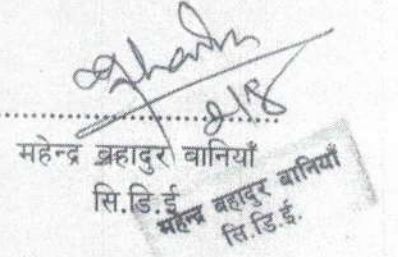 महेन्द्र बहादुर बानियाँ
सि.डि.ई
महेन्द्र बहादुर बानियाँ
सि.डि.ई.